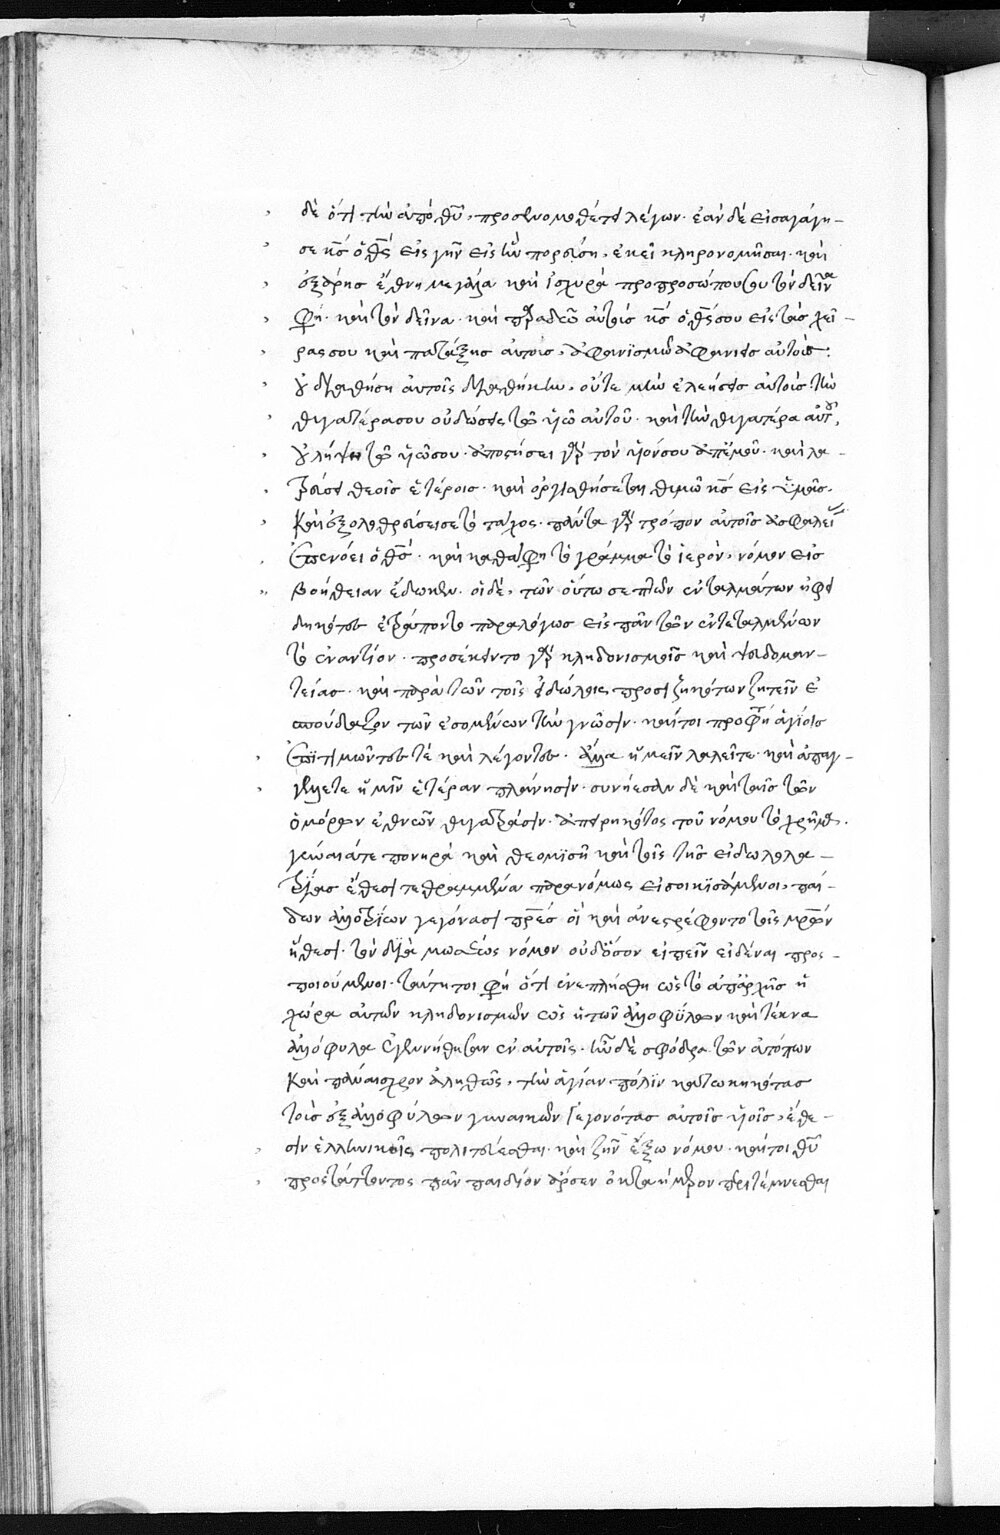 δὲ ὅτι τὴν ἀπὸ θῦ, προσενομοθέτει λέγων· ἐὰν δὲ εἰσαγάγη-
σε κς ὁ θς εἰς γῆν εἰς ἣν πορεύση, ἐκεῖ κληρονομῆσαι· καὶ
ἐξάρης ἔθνη μεγάλα καὶ ἰσχυρὰ πρὸ προσώπου σου τὸν δεῖνα
φη· καὶ τὸν δεῖνα· καὶ παραδῶ αὐτοὺς κς ὁ θς σου εἰς τὰς χεῖ-
ρας σου καὶ πατάξης αὐτοὺς, ἀφανισμῶ ἀφανιεῖς αὐτούς·
οὐ διαθήση αὐτοῖς διαθήκην, οὔτε μὴν ἐλεήσεις αὐτοὺς· τὴν
θυγατέρα σου οὐ δώσεις τῶ υἱῶ αὐτοῦ· καὶ τὴν θυγατέρα αὐτοῦ,
οὐ λήψη τῶ υἱῶ σου· ἀποστήσει γὰρ τὸν υἱόν σου ἀπ' ἐμοῦ· καὶ λα-
τρεύσει θεοῖς ἑτέροις· καὶ ὀργισθήσεται θυμῶ κς εἰς ὑμᾶς·
καὶ ἐξολοθρεύσει σε τὸ τάχος· πάντα γὰρ τρόπον αὐτοῖς ἀσφαλείας
ἐπενόει ὁ θς· καὶ καθά φη τὸ γράμμα τὸ ἱερὸν, νόμον εἰς
βοήθειαν ἔδωκεν· οἱ δὲ, τῶν οὕτω σεπτῶν ἐνταλμάτων ἠφει
δηκότες ἐτράποντο παραλόγως εἰς πᾶν τῶν ἐντεταλμένων
τὸ ἐναντίον· προσέκειντο γὰρ κληδονισμοῖς καὶ ψευδομαν-
τείαις· καὶ παρὰ τῶν τοῖς εἰδώλοις προσεζηκότων ζητεῖν ἐ
σπούδαζον τῶν ἐσομένων τὴν γνῶσιν· καίτοι προφη ἁγίοις
ἐπιτιμῶντος τὲ καὶ λέγοντος· ἄλλα ἡμῖν λαλεῖτε· καὶ ἀπαγ-
γέλλετε ἡμῖν ἑτέραν πλάνησιν· συνήεσαν δὲ καὶ ταῖς τῶν
ὁμόρων ἐθνῶν θυγατράσιν· ἀπειρηκότος τοῦ νόμου τὸ χρῆμα·
γύναια τε πονηρὰ καὶ θεομισῆ καὶ τοῖς τῆς εἰδωλολα-
τρίας ἔθεσι τεθραμμένα παρανόμως εἰσοικισάμενοι, παί-
δων ἀλλοτρίων γεγόνασι πρες· οἳ καὶ ἀνεστρέφοντο τοῖς μρων
ἤθεσι· τὸν διὰ μωσέως νόμον οὐδ' ὅσον εἰπεῖν εἰδέναι προς-
ποιούμενοι· ταύτη τοι φη ὅτι ἐνεπλήσθη ὡς τὸ ἀπ' ἀρχῆς ἡ
χώρα αὐτῶν κληδονισμῶν ὡς ἡ τῶν ἀλλοφύλων καὶ τέκνα
ἀλλόφυλα ἐγεννήθησαν ἐν αὐτοῖς· ἦν δὲ σφόδρα τῶν ἀτόπων
καὶ πάναισχρον ἀληθῶς, τὴν ἁγίαν πόλιν κατωκηκότας
τοὺς ἐξ ἀλλοφύλων γυναικῶν γεγονότας αὐτοῖς υἱοῖς, ἔθε-
σιν ἑλληνικοῖς πολιτεύεσθαι· καὶ ζῆν ἔξω νόμου· καίτοι θῦ
προστάττοντος πᾶν παιδίον ἄρσεν ὀκταήμερον περιτέμνεσθαι